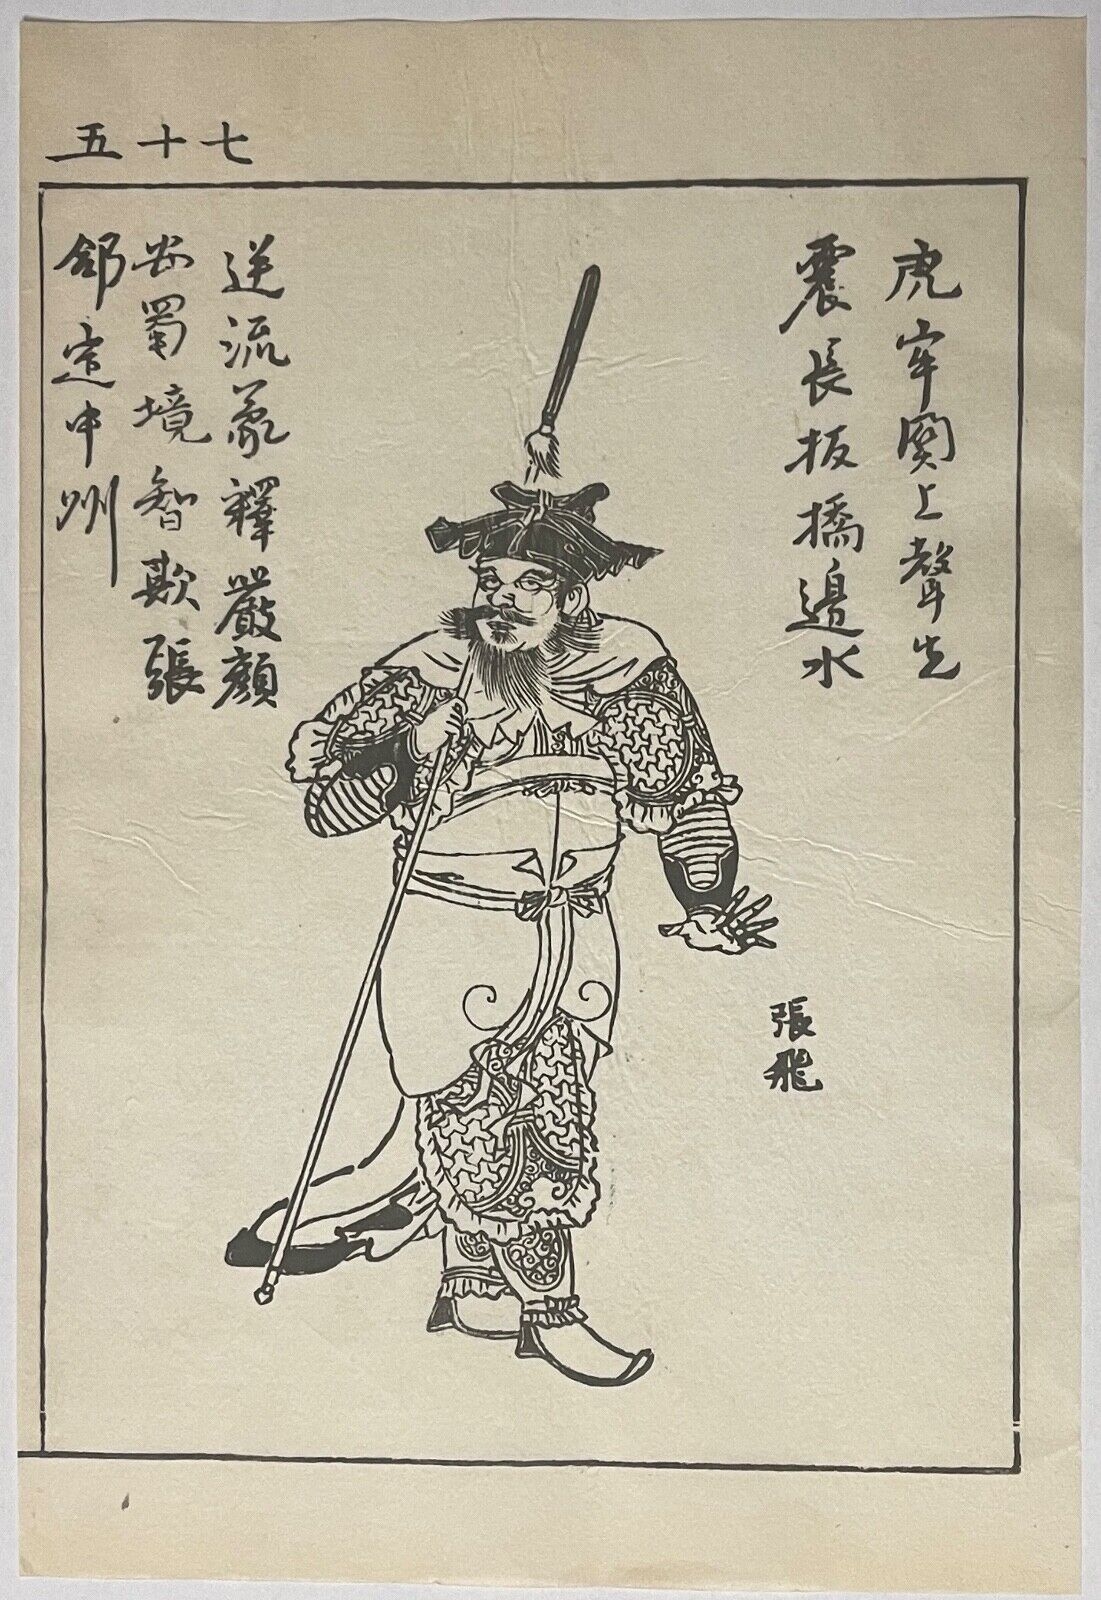 七十五
虎牢關上聲先
震長板橋邊水
張飛
逆流義釋嚴顏
安蜀境智欺張
郃定中州